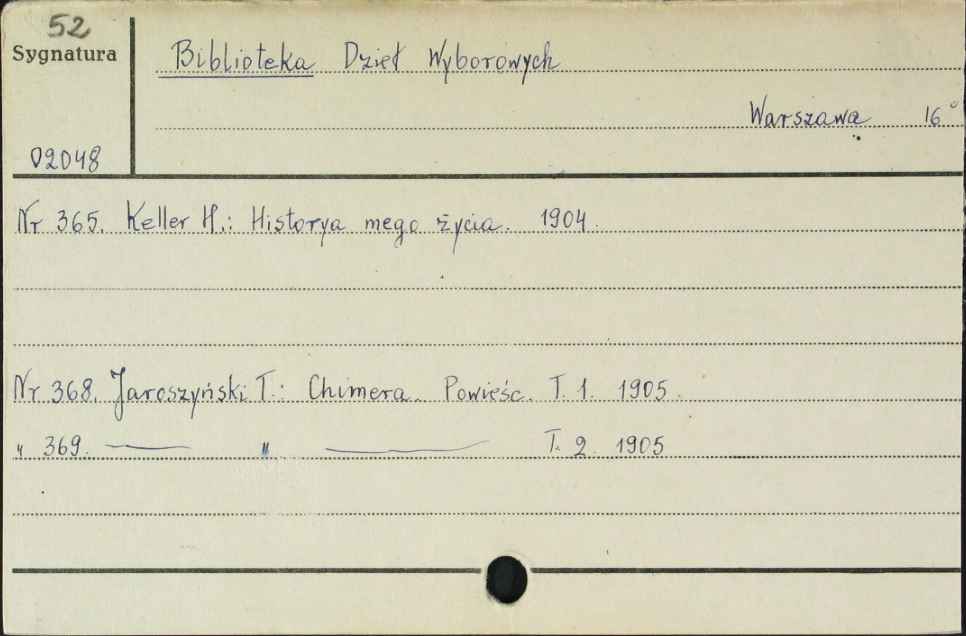 52
Sygnatura
Biblioteka Dzieł Wyborowych
Warszawa 16°
02048
Nr 365. Keller H.: Historya mego życia. 1904.
Nr 368. Jaroszyński T.: Chimera. Powieść. T. 1. 1905.
" 369. — " — T. 2. 1905